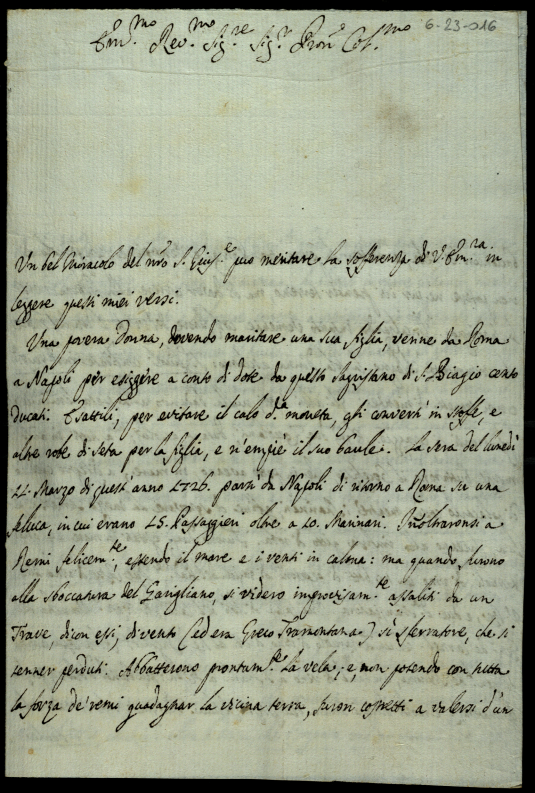 6-23-016
Em.mo Rev.mo Sig.re Sig.r Pron.e Col.mo
Un bel Miracolo del nro S. Gius.e può meritare la sofferenza di V. Em.ra in
leggere questi miei versi.
Una povera Donna, dovendo maritare una sua figlia, venne da Roma
a Napoli per esiggere a conto di dote da questo Sagristano di S. Biagio cento
Ducati. Esattili, per evitare il calo d.a moneta, gli convertì in stoffe, e
altre robe di seta per la figlia, e n'empiè il suo baule. La sera del lunedì
11. Marzo di quest'anno 1726. partì da Napoli di ritorno a Roma su una
felluca, in cui erano 15. Passaggieri oltre a 10. Marinari. Inoltraronsi a
Remi felicem.te, essendo il mare e i venti in calma: ma quando furono
alla sboccatura del Garigliano, si videro improvisam.te assaliti da un
Trave, dicon essi, di vento (ed era Greco Tramontana) sì sferratore, che si
tenner perduti. Abbatterono prontam.te la vela; e, non potendo con tutta
la forza de' remi guadagnar la vicina terra, furon costretti a valersi d'un